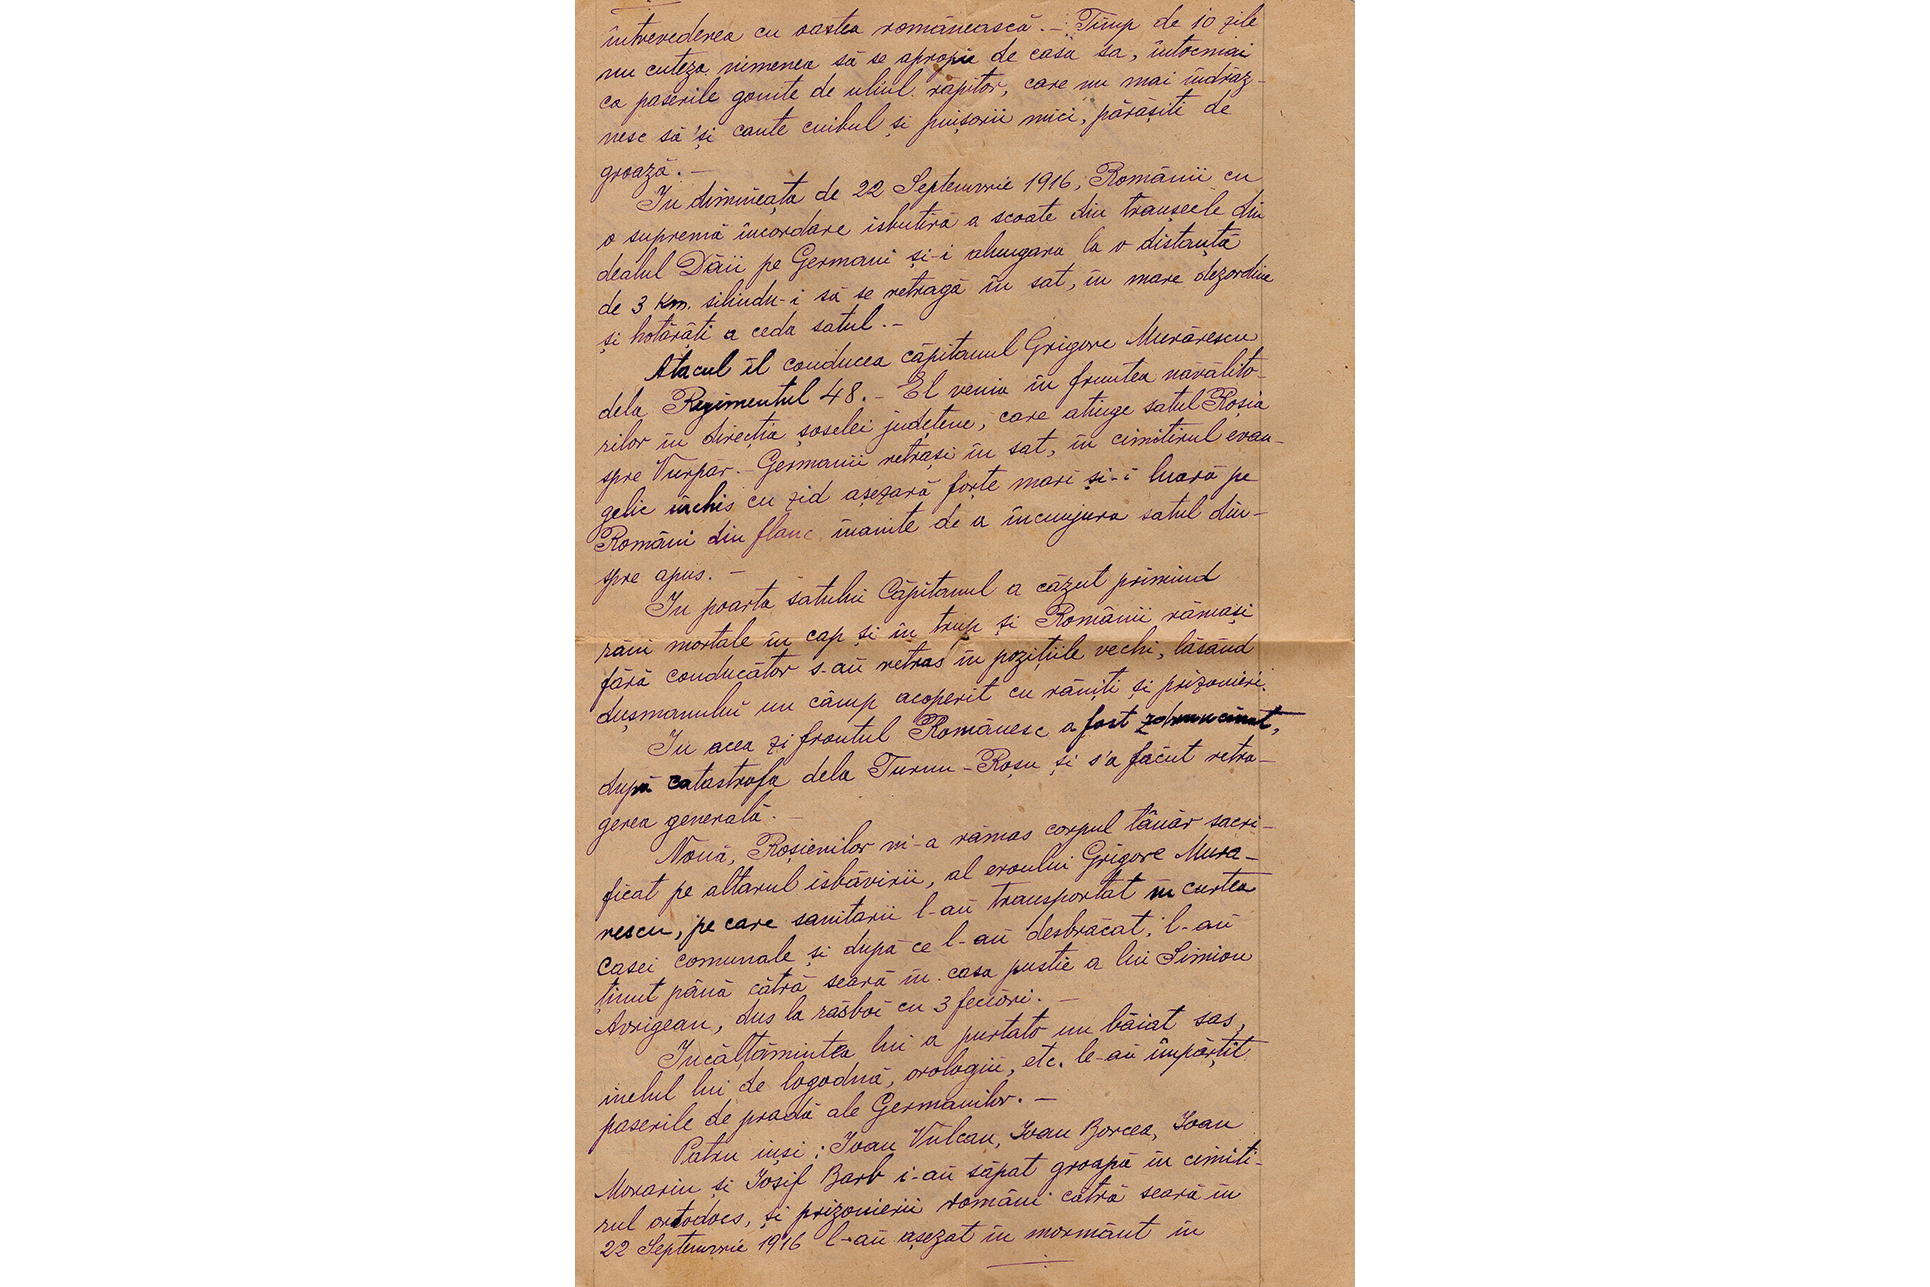 întrevederea cu oastea românească. – Timp de 10 zile
nu cuteza nimenea să se apropie de casa sa, întocmai
ca paserile gonite de uliul răpitor, care nu mai îndrăz-
nesc să 'și caute cuibul și puișorii mici, părăsiți de
groază. –
In dimineața de 22 Septemvrie 1916, Românii cu
o supremă încordare isbutiră a scoate din tranșeele din
dealul Dăii pe Germani și-i alungara la o distanță
de 3 Km. silindu-i să se retragă în sat, în mare dezordine
și hotărâți a ceda satul. –
Atacul îl conducea căpitanul Grigore Murărescu
dela Regimentul 48. – El venia în fruntea năvălito-
rilor în direcția șoselei județene, care atinge satul Roșia
spre Vurpăr. – Germanii retrași în sat, în cimitirul evan-
gelic închis cu zid așezară forțe mari și-i luară pe
Români din flanc înainte de a încunjura satul din-
spre apus. –
In poarta satului Căpitanul a căzut primind
răni mortale în cap și în trup și Românii rămași
fără conducător s-au retras în pozițiile vechi, lăsând
dușmanului un câmp acoperit cu răniți și prizonieri.
In acea zi frontul Românesc a fost zdruncinat,
după catastrofa dela Turnu-Roșu și s'a făcut retra-
gerea generală. –
Nouă, Roșienilor ni-a rămas corpul tânăr sacri-
ficat pe altarul isbăvirii, al eroului Grigore Mura-
rescu, pe care sanitarii l-au transportat în curtea
casei comunale și după ce l-au desbrăcat, l-au
ținut până cătră seară în casa pustie a lui Simion
Avrigean, dus la răsboi cu 3 feciori. –
Incălțămintea lui a purtat-o un băiat sas,
inelul lui de logodnă, orologiu, etc. le-au împărțit
paserile de pradă ale Germanilor. –
Patru inși: Ioan Vulcan, Ioan Borcea, Ioan
Morariu și Iosif Barb i-au săpat groapă în cimiti-
rul ortodocs, și prizonierii români cătră seară în
22 Septemvrie 1916 l-au așezat în mormânt în